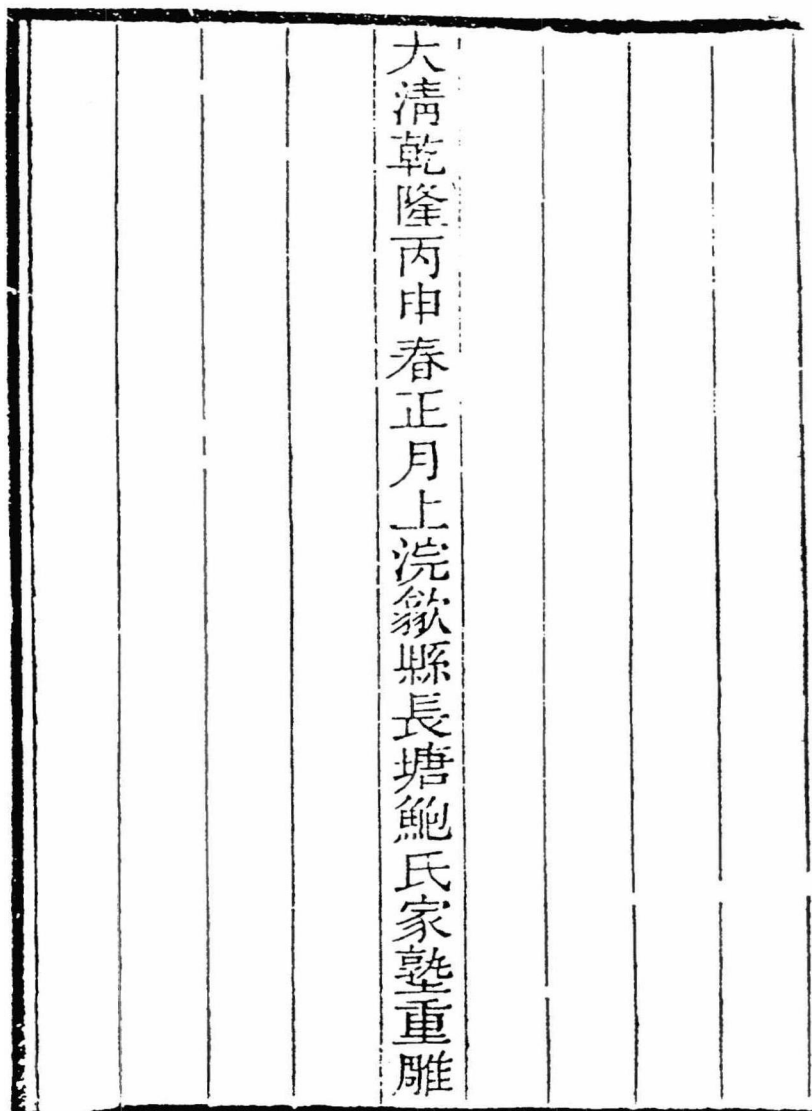 大清乾隆丙申春正月上浣歙縣長塘鮑氏家塾重雕